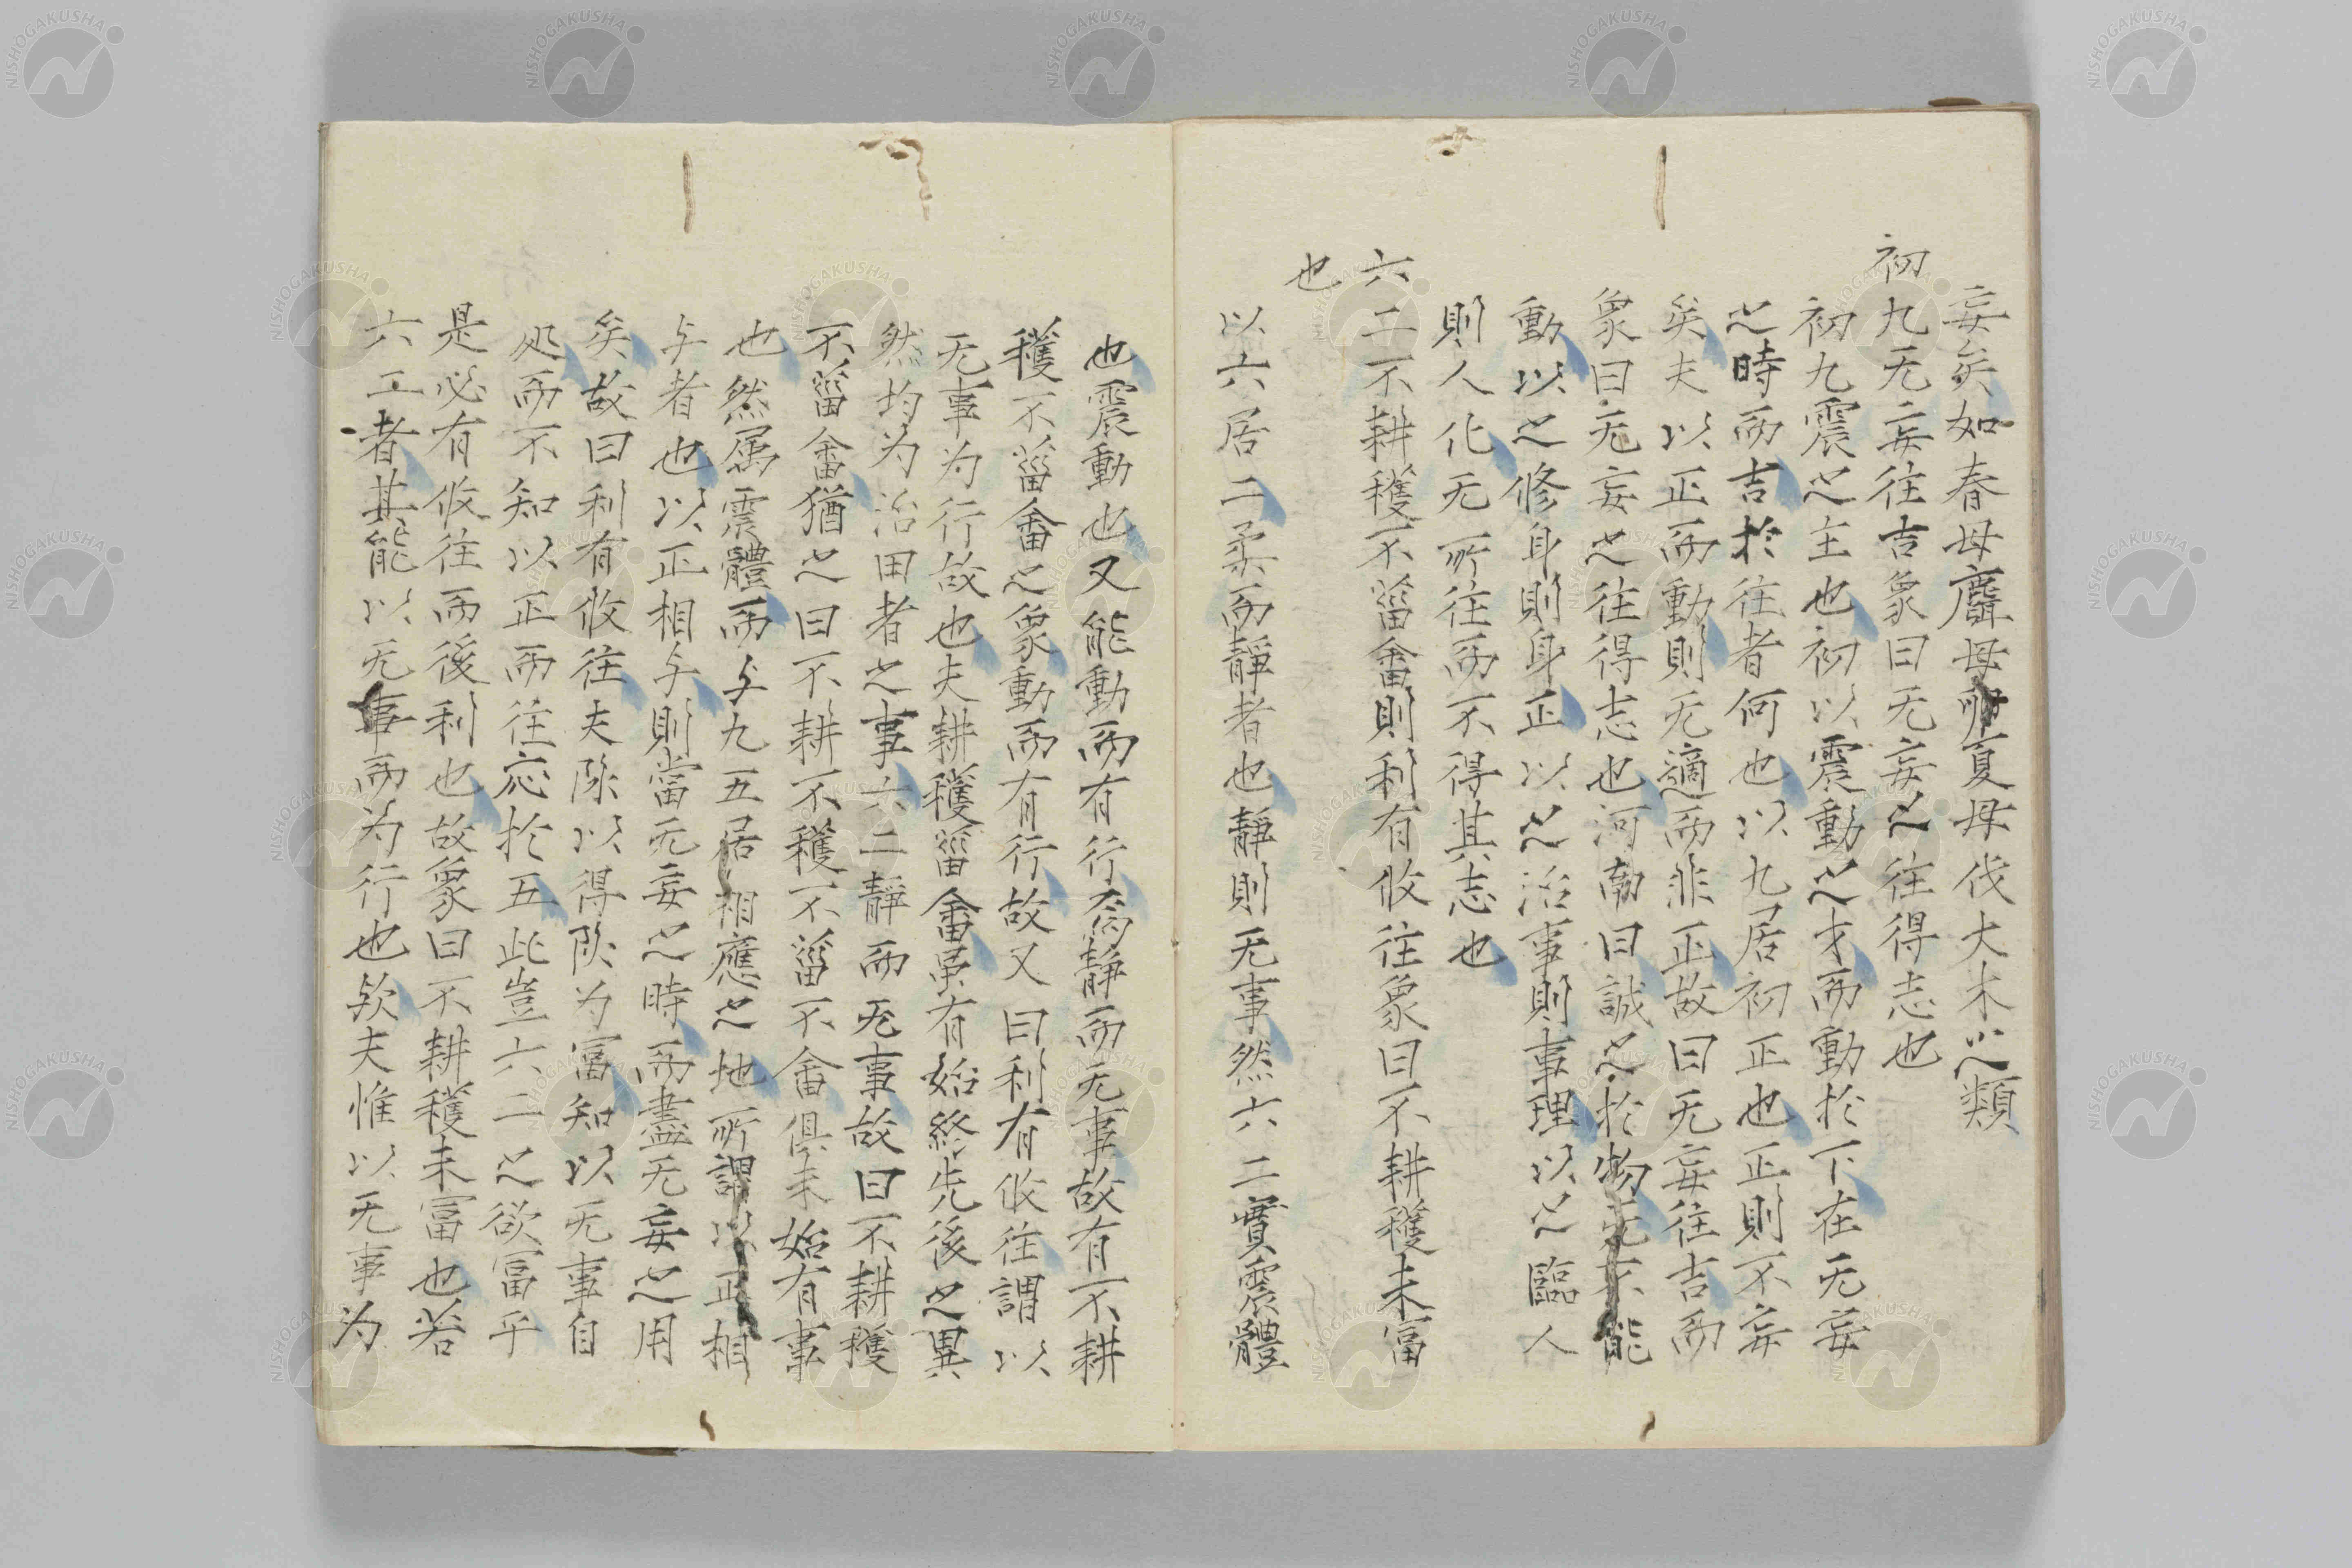 妄矣如春毋麛毋卵夏毋伐大木之類
初九无妄往吉象曰无妄之往得志也
初九震之主也初以震動之才而動於下在无妄
之時而吉於往者何也以九居初正也正則不妄
矣夫以正而動則无適而非正故曰无妄往吉而
象曰无妄之往得志也河南曰誠之於物无不能
動以之修身則身正以之治事則事理以之臨人
則人化无所往而不得其志也
六二不耕穫不菑畬則利有攸往象曰不耕穫未富
也
以六居二柔而靜者也靜則无事然六二實震體
也震動也又能動而有行焉靜而无事故有不耕
穫不菑畬之象動而有行故又曰利有攸往謂以
无事为行故也夫耕穫菑畬虽有始終先後之異
然均为治田者之事六二靜而无事故曰不耕穫
不菑畬猶之曰不耕不穫不菑不畬俱未始有事
也然属震體而与九五居相應之地所謂以正相
与者也以正相与則當无妄之時而盡无妄之用
矣故曰利有攸往夫陈以得陈为富知以无事自
处而不知以正而往应於五此豈六二之欲富乎
是必有攸往而後利也故象曰不耕穫未富也若
六二者其能以无事而为行也欤夫惟以无事为